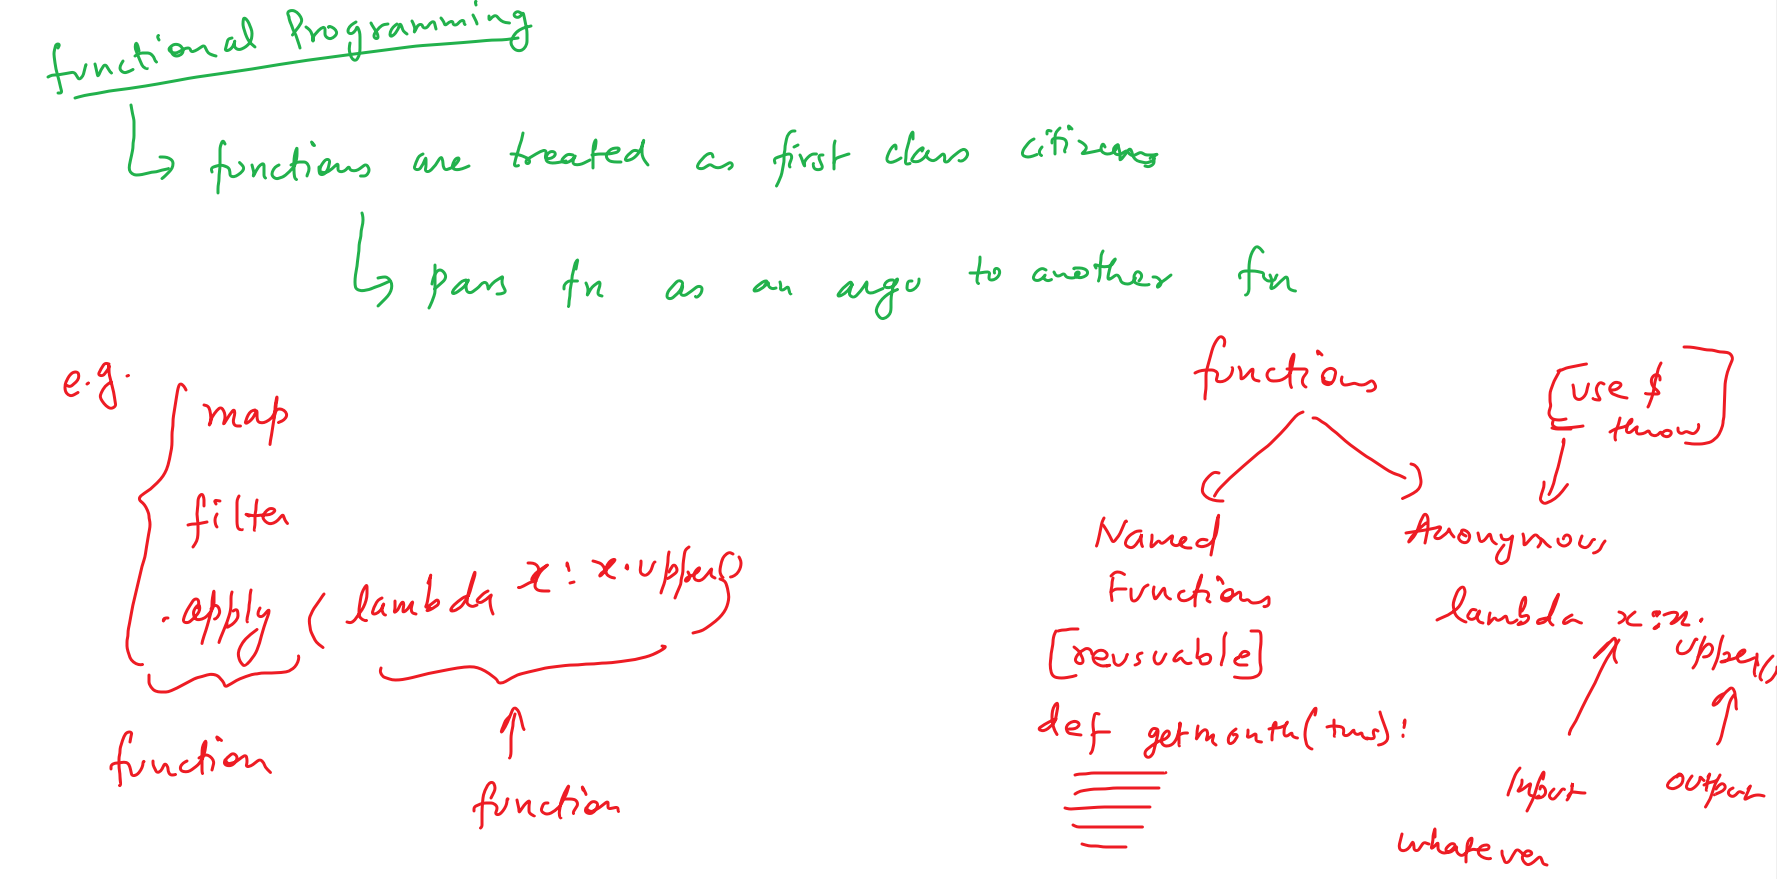 functional Programming
functions are treated as first class citizens
pass fn as an argo to another fxn
e.g.
map
filter
.apply (lambda x: x.upper())
function
function
functions
[use &
throw]
Named
Functions
[reusuable]
def getmonth(tms):
Anonymous
lambda x:x.
upper()
Input
output
whatever